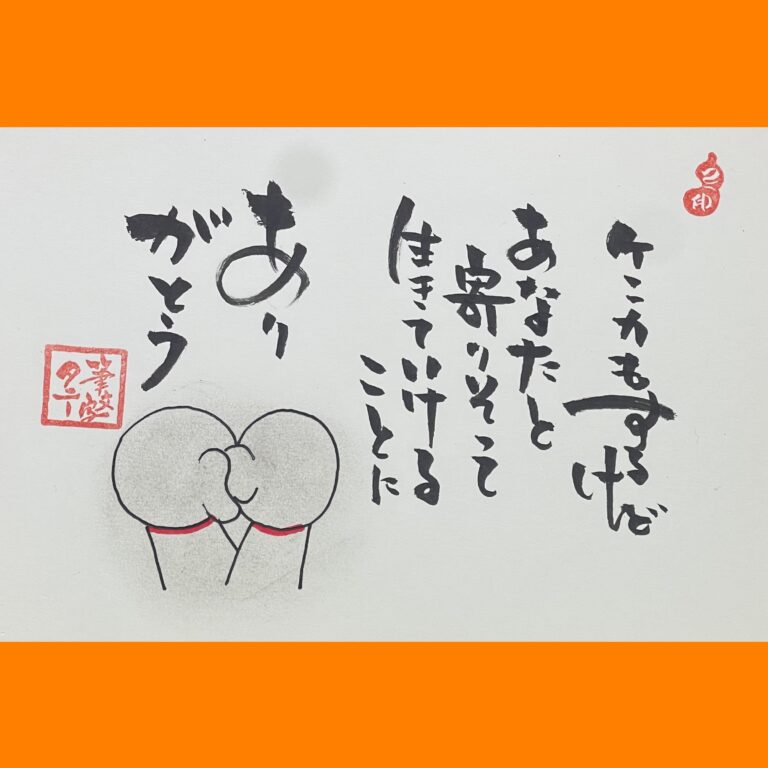 ケンカもするけど
あなたと
寄りそって
生きていける
ことに
あり
がとう